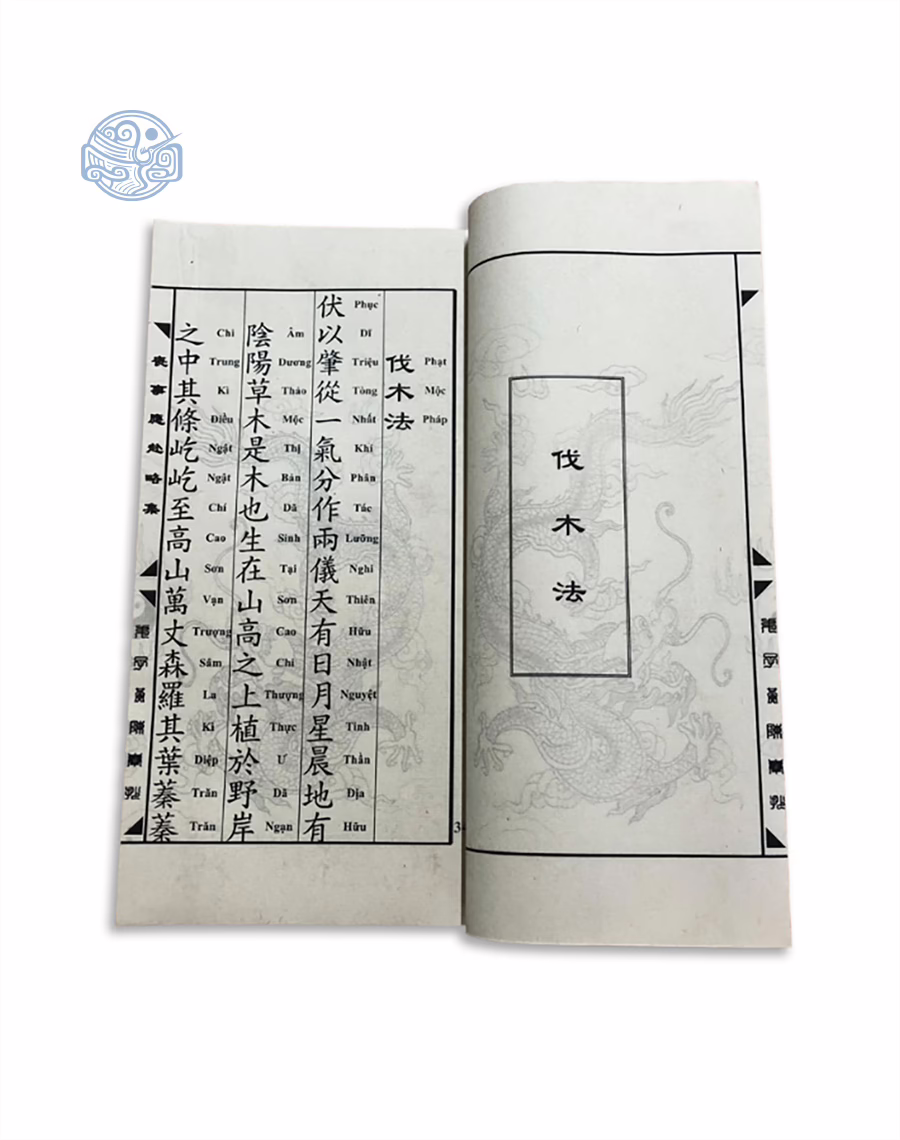 伐木法
伐木法
Phạt Mộc Pháp
伏以肇從一氣分作兩儀天有日月星晨地有
Phục Dĩ Triệu Tòng Nhất Khí Phân Tác Lưỡng Nghi Thiên Hữu Nhật Nguyệt Tinh Thần Địa Hữu
陰陽草木是木也生在山高之上植於野岸
Âm Dương Thảo Mộc Thị Bản Dã Sinh Tại Sơn Cao Chi Thượng Thực Ư Dã Ngạn
之中其條屹屹至高山萬丈森羅其葉蓁蓁
Chi Trung Kì Điều Ngật Ngật Chí Cao Sơn Vạn Trượng Sâm La Kì Diệp Trăn Trăn
喪事應赴略集